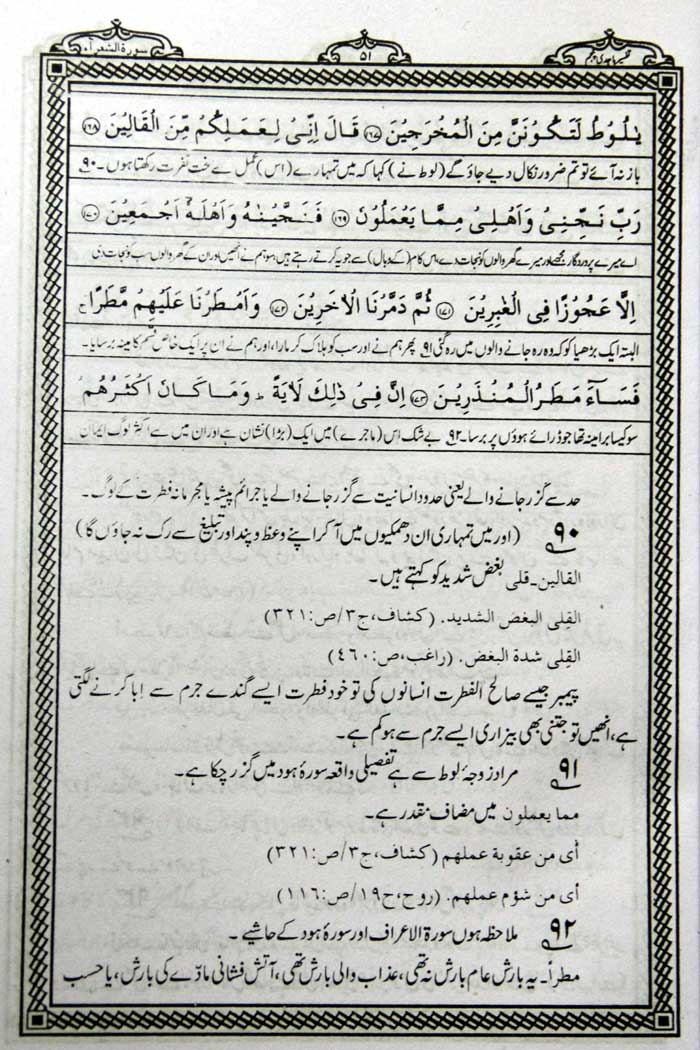 سورة الشعرآء
۵۱
تفسیر ماجدی پنجم
يٰلُوْطُ لَتَكُوْنَنَّ مِنَ الْمُخْرَجِيْنَ ﴿۱۶۷﴾ قَالَ اِنِّىْ لِعَمَلِكُمْ مِّنَ الْقَالِيْنَ ﴿۱۶۸﴾
باز نہ آئے تو تم ضرور نکال دیے جاؤ گے (لوط نے) کہا کہ میں تمہارے (اس) عمل سے سخت نفرت رکھتا ہوں۔ ۹۰
رَبِّ نَجِّنِىْ وَاَهْلِىْ مِمَّا يَعْمَلُوْنَ ﴿۱۶۹﴾ فَنَجَّيْنٰهُ وَاَهْلَهٗۤ اَجْمَعِيْنَ ﴿۱۷۰﴾
اے میرے پروردگار مجھے اور میرے گھر والوں کو نجات دے، اس کام (کے وبال) سے جو یہ کرتے رہتے ہیں، سو ہم نے انھیں اور ان کے گھر والوں سب کو نجات دی
اِلَّا عَجُوْزًا فِى الْغٰبِرِيْنَ ﴿۱۷۱﴾ ثُمَّ دَمَّرْنَا الْاٰخَرِيْنَ ﴿۱۷۲﴾ وَاَمْطَرْنَا عَلَيْهِمْ مَّطَرًا ۚ
البتہ ایک بڑھیا کو کہ وہ رہ جانے والوں میں رہ گئی ۹۱ پھر ہم نے اور سب کو ہلاک کر مارا، اور ہم نے ان پر ایک خاص قسم کا مینہ برسایا۔
فَسَآءَ مَطَرُ الْمُنْذَرِيْنَ ﴿۱۷۳﴾ اِنَّ فِىْ ذٰلِكَ لَاٰيَةً ؕ وَمَا كَانَ اَكْثَرُهُمْ
سو کیسا برا مینہ تھا جو ڈرائے ہوؤں پر برسا۔ ۹۲ بے شک اس (ماجرے) میں ایک (بڑا) نشان ہے اور ان میں سے اکثر لوگ ایمان
حد سے گزر جانے والے یعنی حدود انسانیت سے گزر جانے والے یا جرائم پیشہ یا مجرمانہ فطرت کے لوگ۔
۹۰ (اور میں تمہاری ان دھمکیوں میں آکر اپنے وعظ و پند اور تبلیغ سے رک نہ جاؤں گا)
القالین۔ قلی بغض شدید کو کہتے ہیں۔
القلی البغض الشدید. (کشاف، ج۳/ص:۳۲۱)
القِلی شدة البغض. (راغب، ص:۴۶۰)
پیمبر جیسے صالح الفطرت انسانوں کی تو خود فطرت ایسے گندے جرم سے اِبا کرنے لگتی
ہے، انھیں تو جتنی بھی بیزاری ایسے جرم سے ہو کم ہے۔
۹۱ مراد زوجۂ لوط سے ہے تفصیلی واقعہ سورۂ ہود میں گزر چکا ہے۔
مما یعملون میں مضاف مقدر ہے۔
أی من عقوبة عملهم (کشاف، ج۳/ص:۳۲۱)
أی من شؤم عملهم. (روح، ج۱۹/ص:۱۱۶)
۹۲ ملاحظہ ہوں سورۃ الاعراف اور سورۂ ہود کے حاشیے۔
مطراً۔ یہ بارش عام بارش نہ تھی، عذاب والی بارش تھی، آتش فشانی مادّے کی بارش، یا حسب